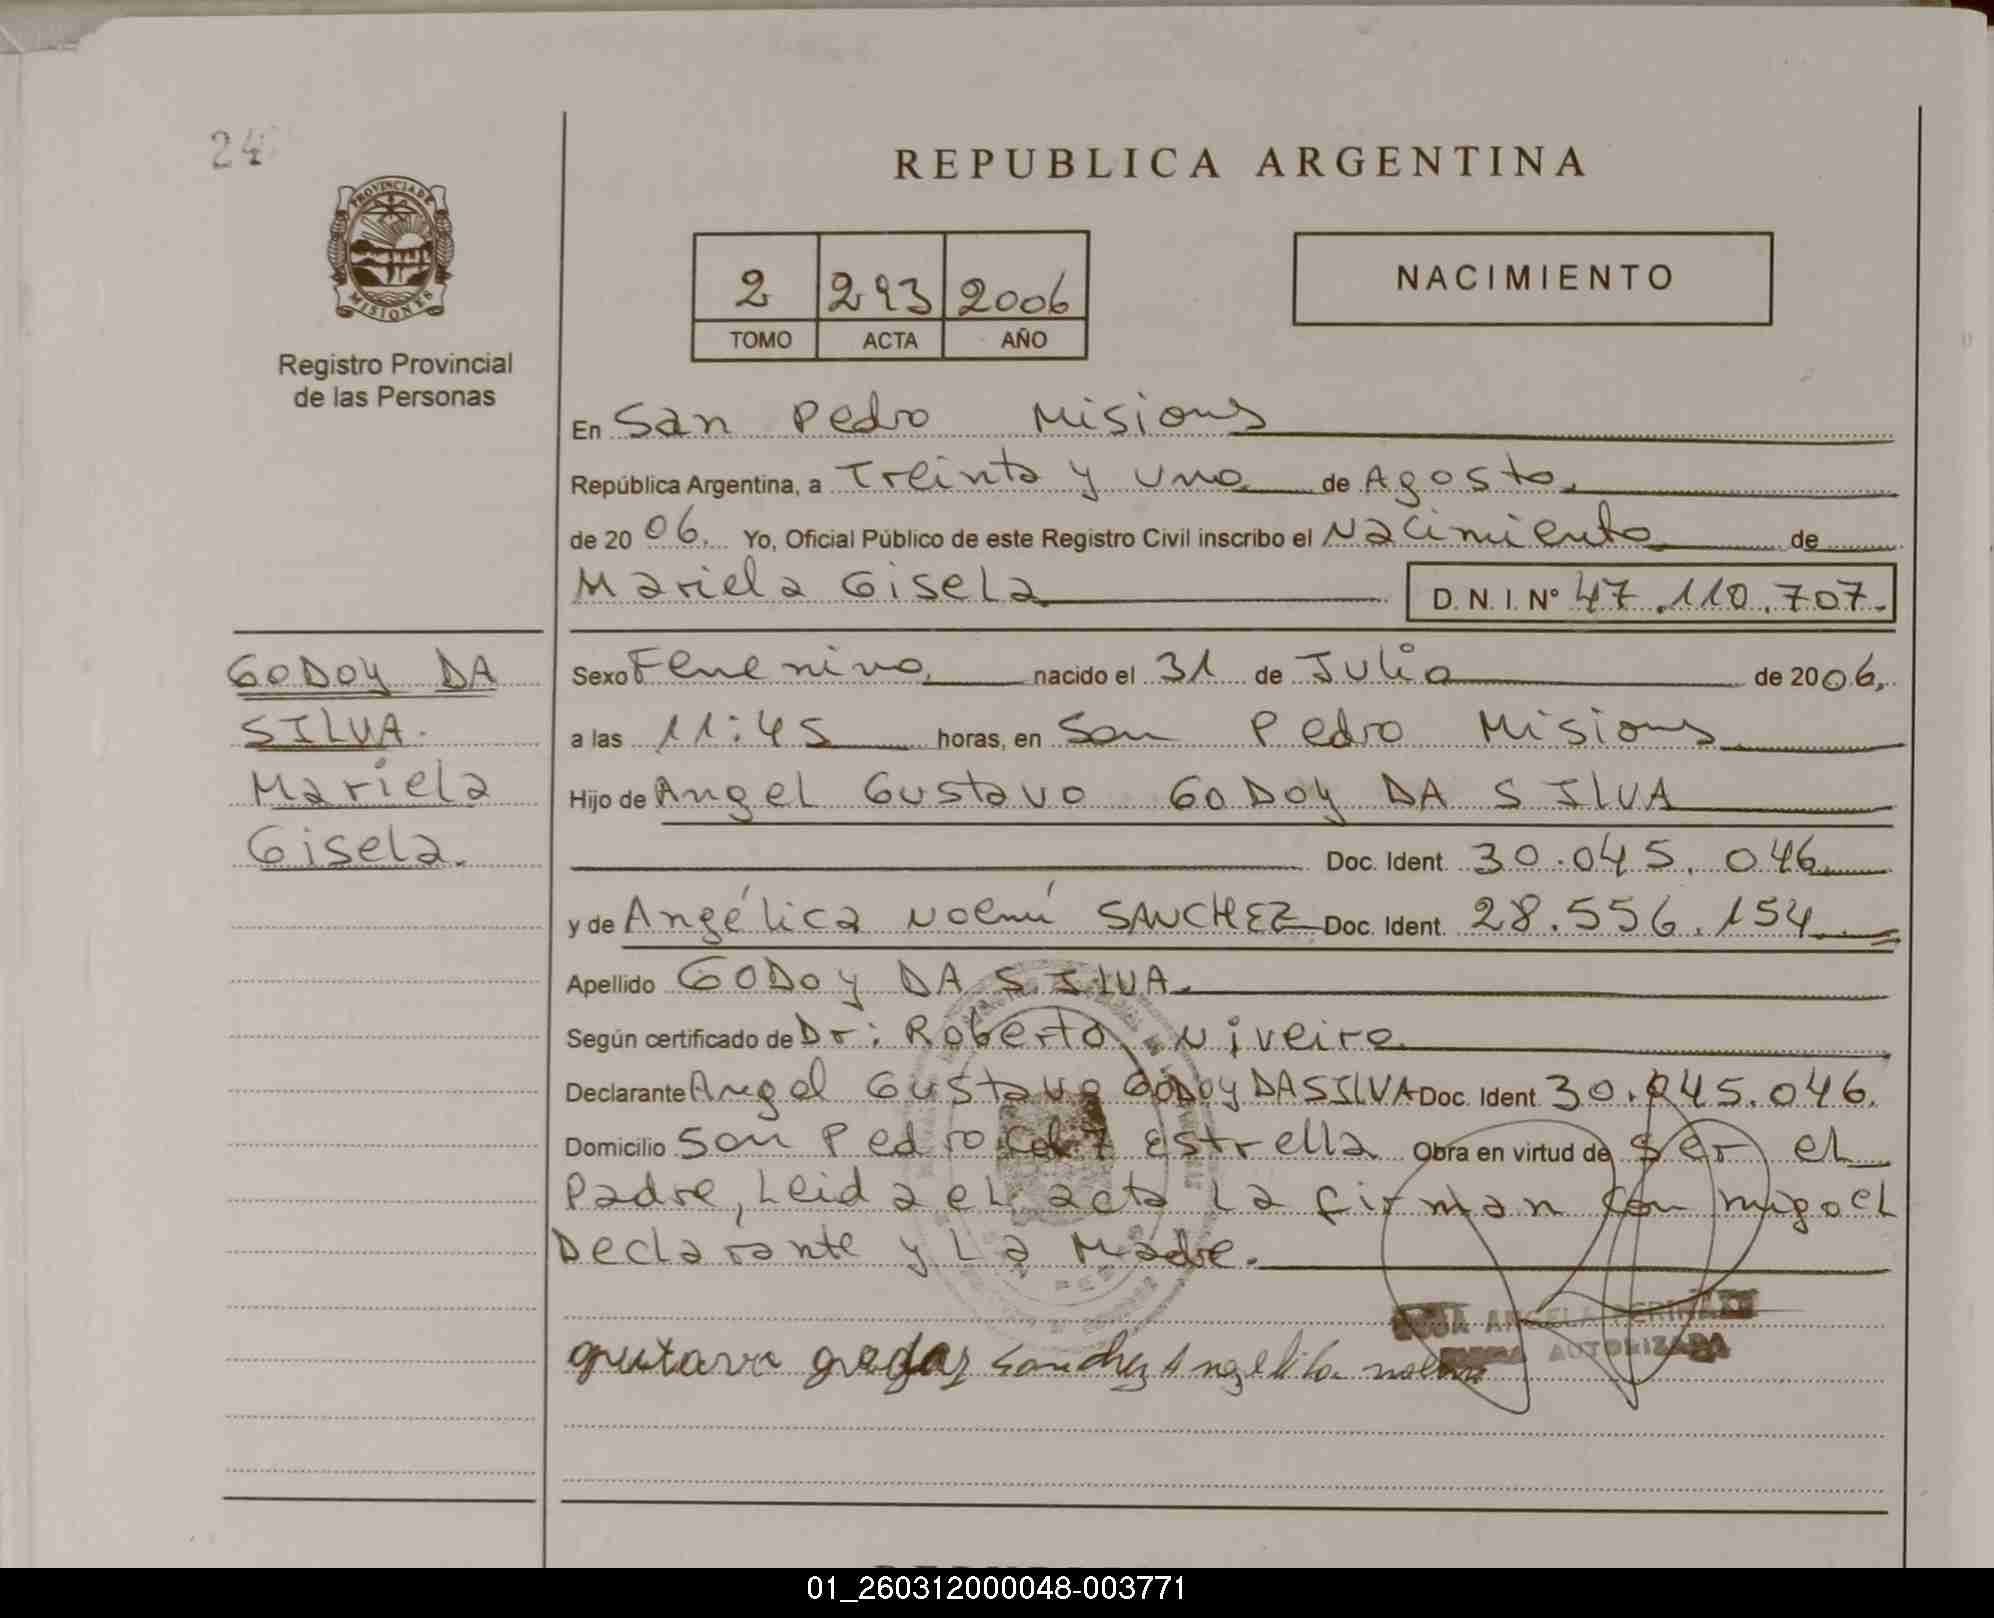 24
REPUBLICA ARGENTINA
PROVINCIA DE
MISIONES
Registro Provincial
de las Personas
2 293 2006
TOMO ACTA AÑO
NACIMIENTO
En San Pedro Misiones
República Argentina, a Treinta y uno de Agosto.
de 2006. Yo, Oficial Público de este Registro Civil inscribo el Nacimiento de
Mariela Gisela D. N. I. Nº 47.110.707.
GODOY DA
SILVA.
Mariela
Gisela.
Sexo Femenino, nacido el 31 de Julio de 2006,
a las 11:45 horas, en San Pedro Misiones
Hijo de Angel Gustavo GODOY DA SILVA
Doc. Ident. 30.045.046
y de Angélica Noemí SANCHEZ Doc. Ident. 28.556.154
Apellido GODOY DA SILVA.
Según certificado de Dr: Roberto Niveiro
Declarante Angel Gustavo GODOY DA SILVA Doc. Ident. 30.045.046.
Domicilio San Pedro Estrella Obra en virtud de ser el
Padre, Leida el acta la firman con migo el
Declarante y La Madre.
ANGELA
AUTORIZADA
gustavo godoy Sanchez Angelica noemi
01_260312000048-003771